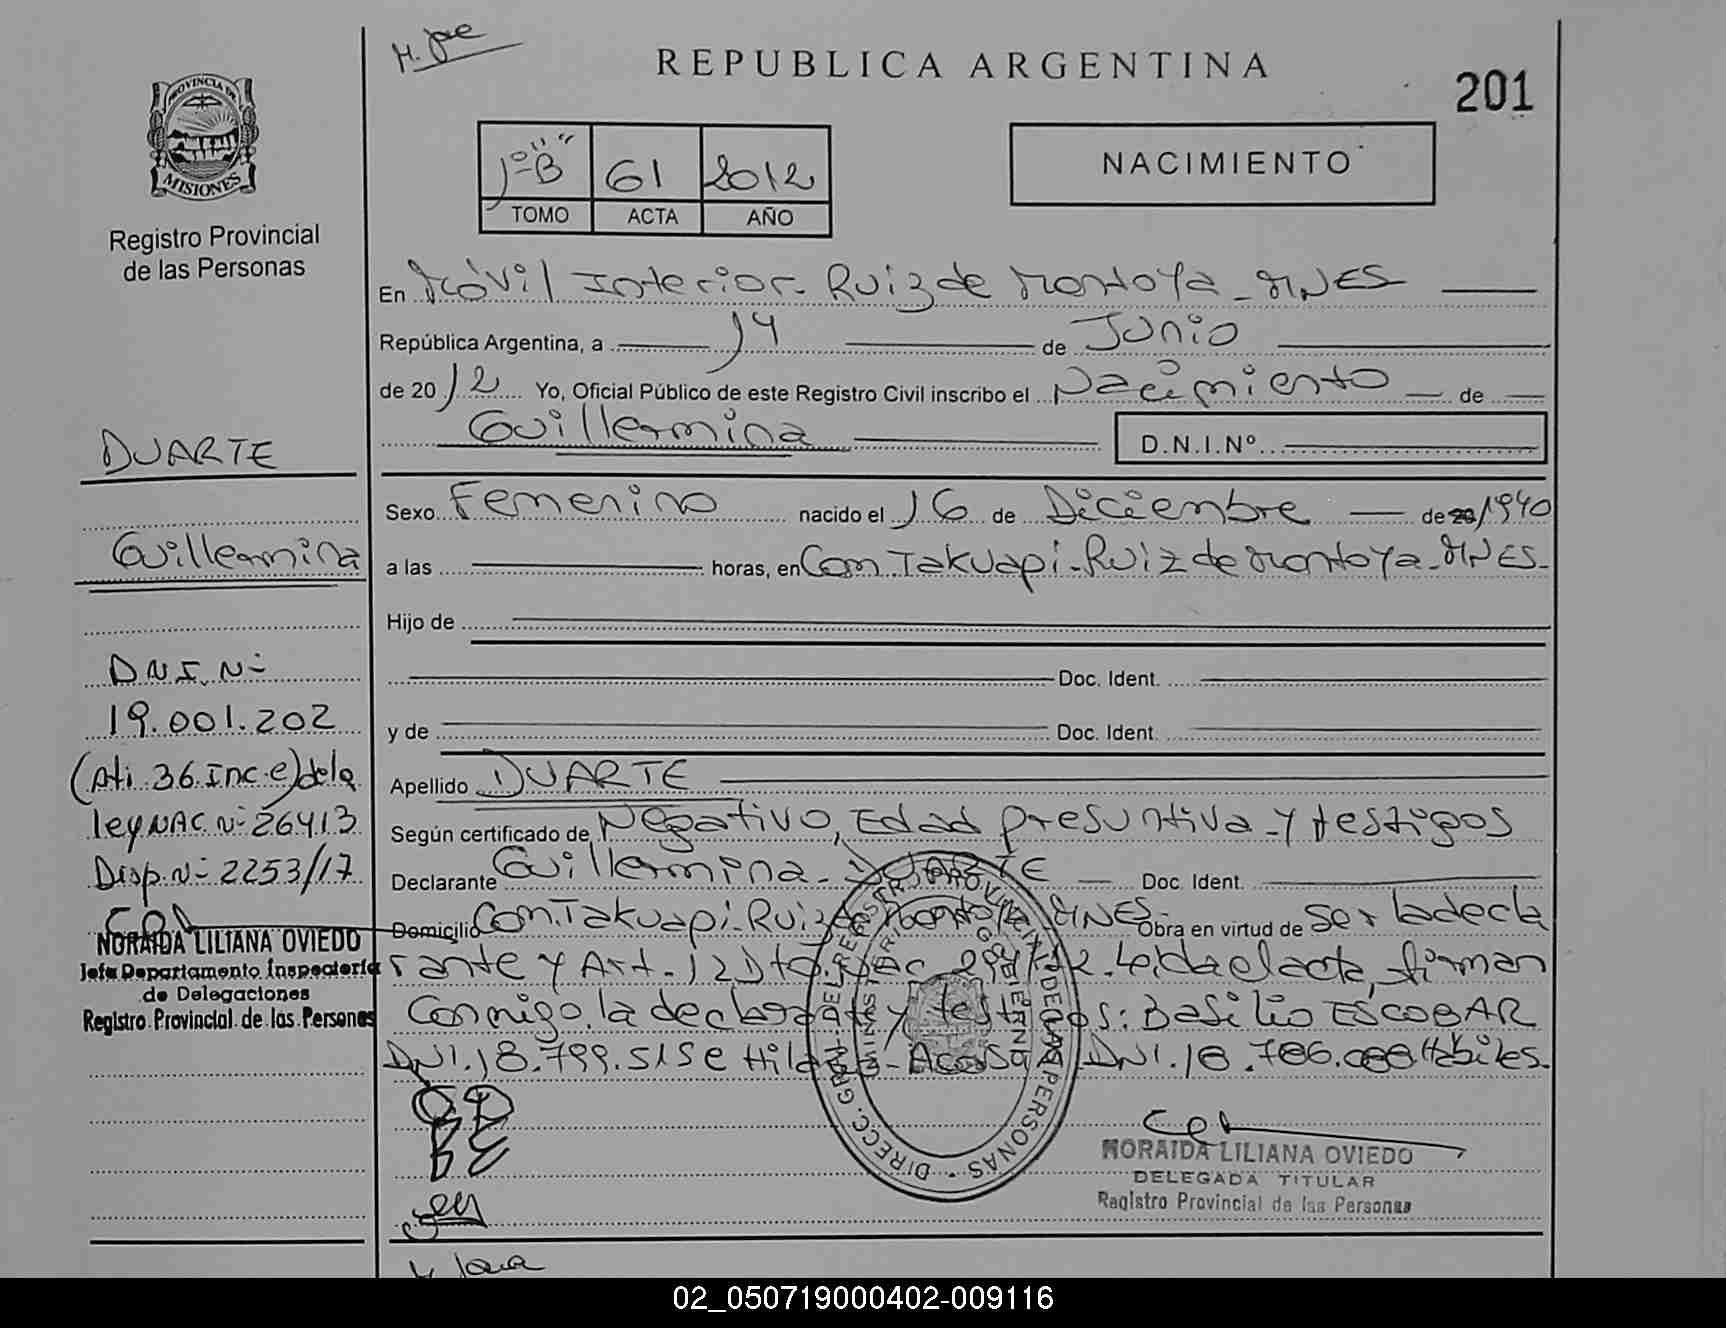 REPUBLICA ARGENTINA
201
PROVINCIA DE
MISIONES
Registro Provincial
de las Personas
1º "B" 61 2012
TOMO ACTA AÑO
NACIMIENTO
En Móvil Interior - Ruiz de Montoya - MNES
República Argentina, a 14 de Junio
de 2012 Yo, Oficial Público de este Registro Civil inscribo el Nacimiento de
Guillermina D.N.I.Nº
Sexo Femenino nacido el 16 de Diciembre de 20/1940
a las horas, en Com. Takuapi - Ruiz de Montoya - MNES -
Hijo de
Doc. Ident.
y de Doc. Ident.
Apellido DUARTE
Según certificado de Negativo, Edad presuntiva y testigos
Declarante Guillermina - DUARTE Doc. Ident.
Domicilio Com. Takuapi - Ruiz de Montoya MNES - Obra en virtud de ser la decla
rante y Art. 12 Dto. Nac. Leída el acta, firman
conmigo la declarante y testigos: Basilio ESCOBAR
DNI. 18.799.515 e Acosta DNI. 18.786. Hábiles.
DIRECC. GRAL. DEL REGISTRO PROVINCIAL DE LAS PERSONAS
MINISTERIO GOBIERNO
NORAIDA LILIANA OVIEDO
DELEGADA TITULAR
Registro Provincial de las Personas
DUARTE
Guillermina
D.N.I. Nº
19.001.202
(Art. 36 Inc. e) de la
ley NAC. Nº 26413
Disp. Nº 2253/17
NORAIDA LILIANA OVIEDO
Jefa Departamento Inspectoría
de Delegaciones
Registro Provincial de las Personas
02_050719000402-009116